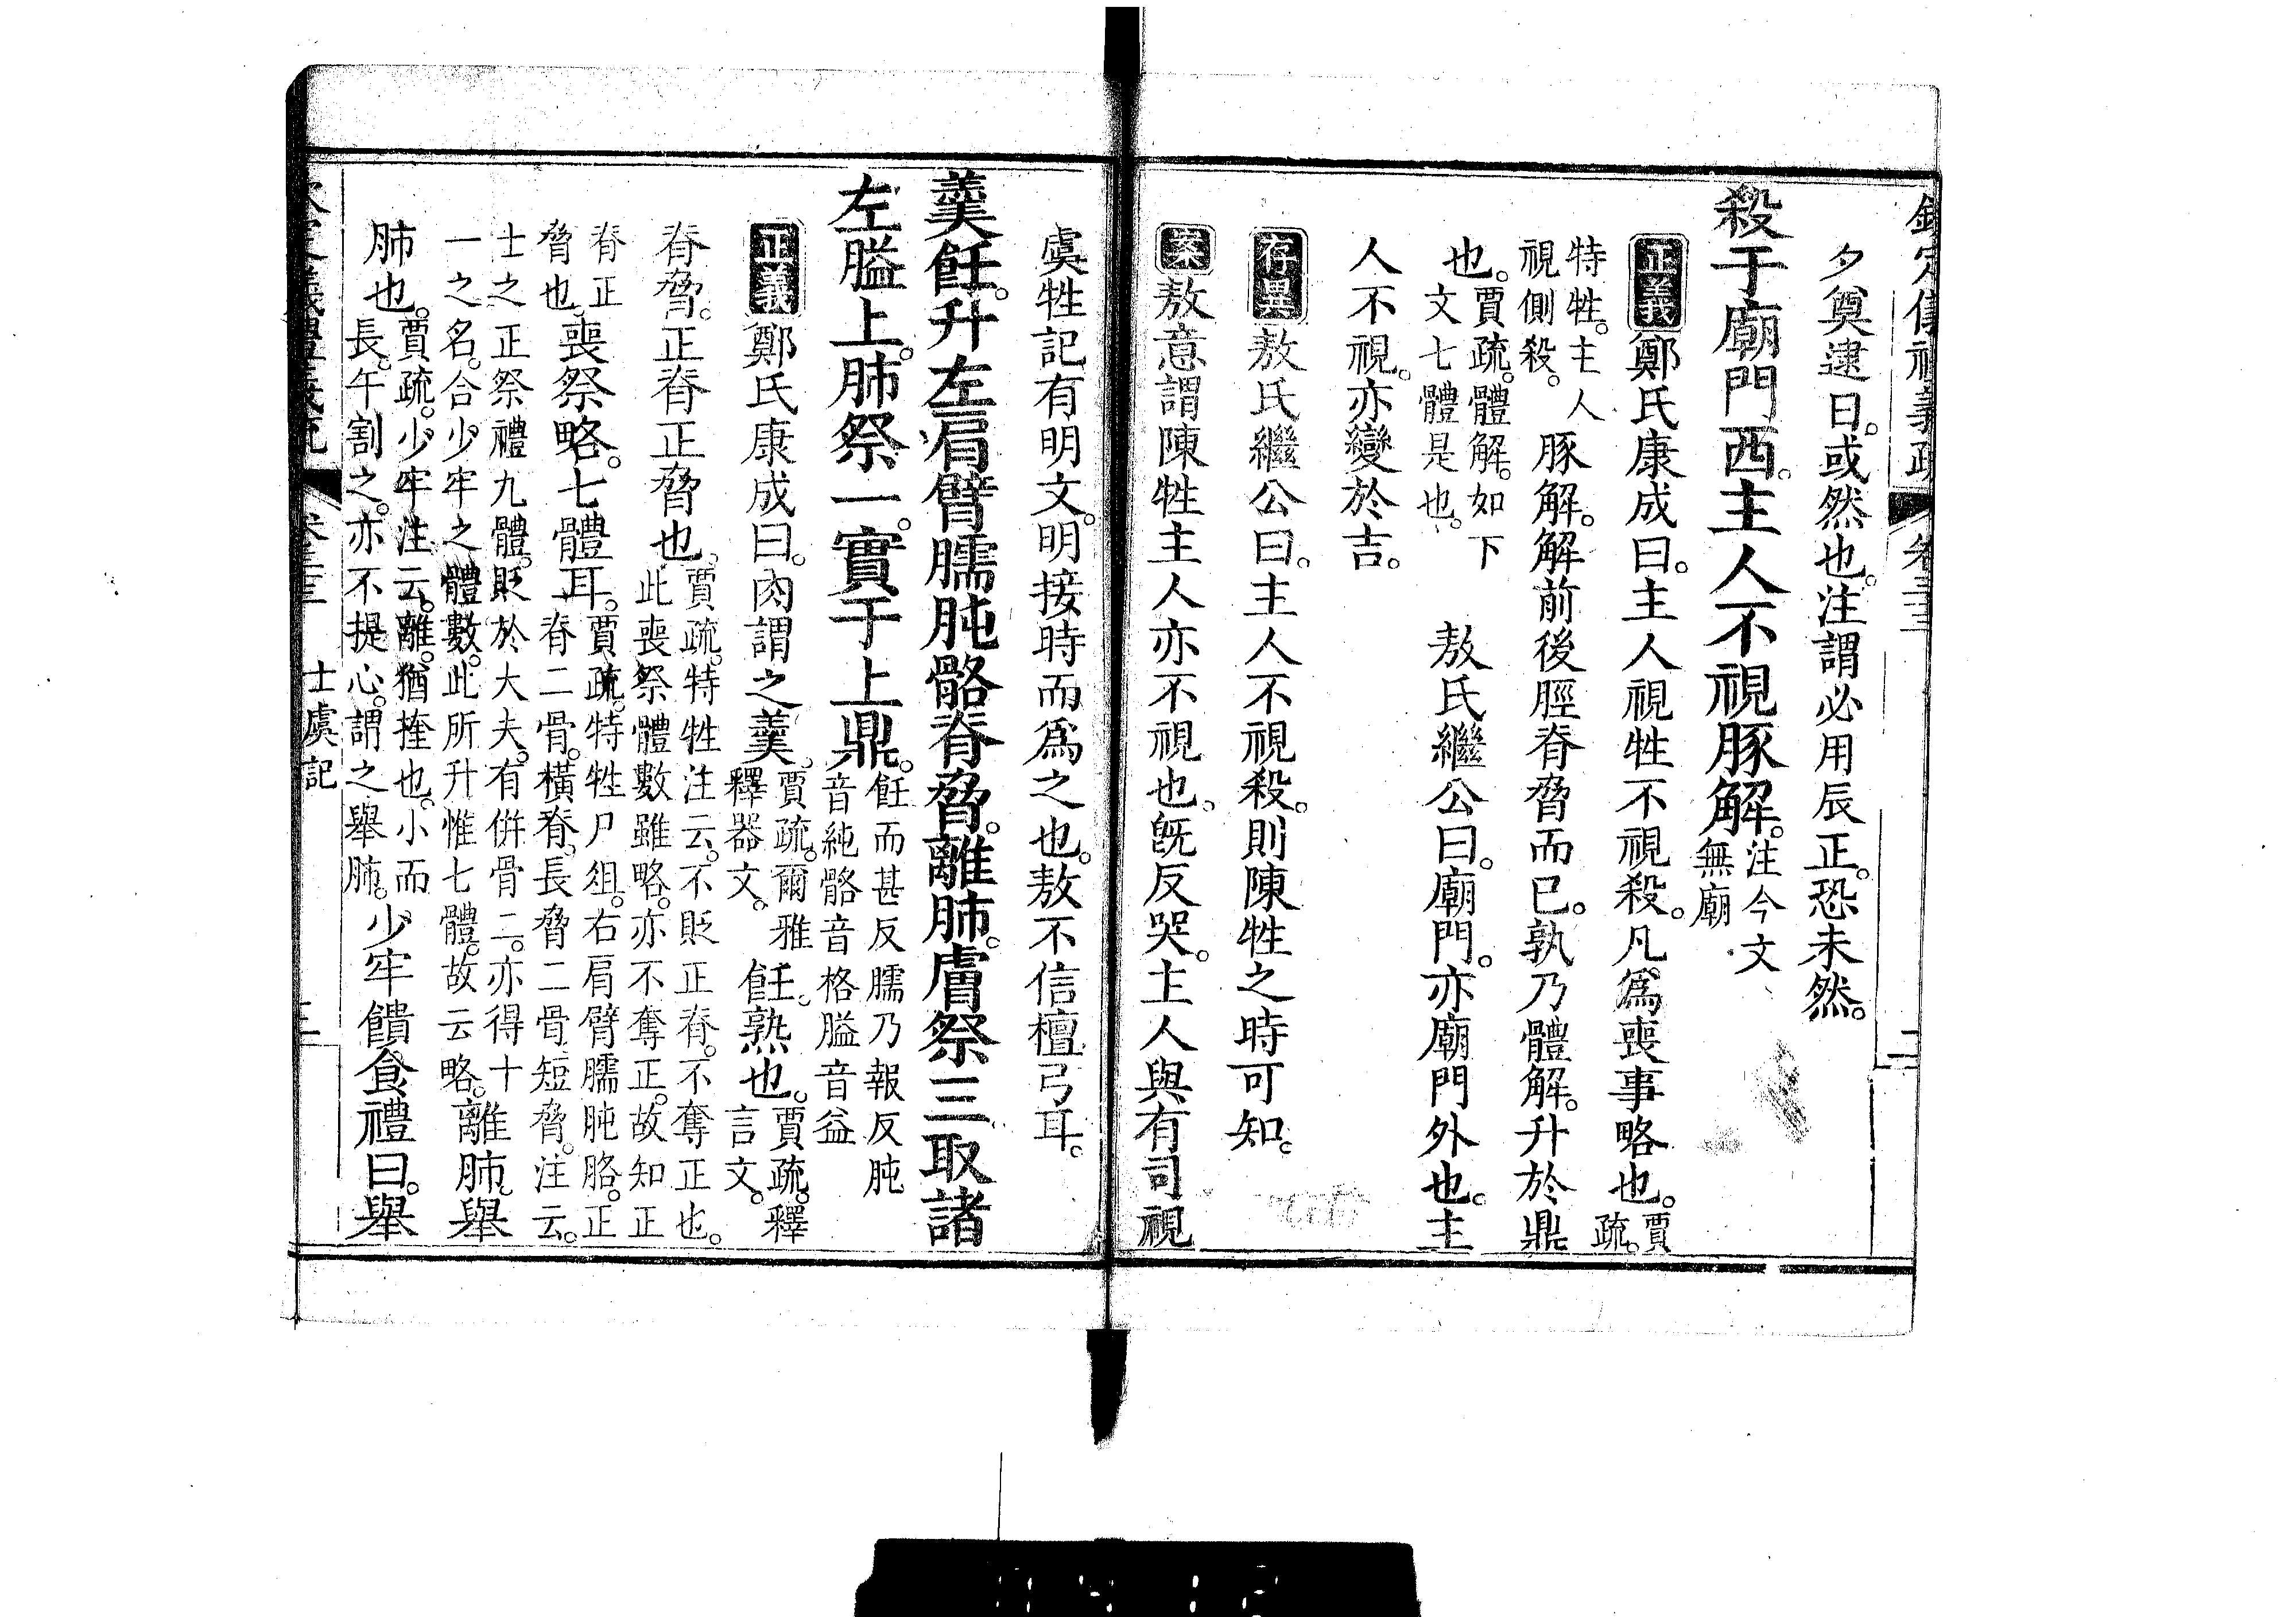 欽定儀禮義疏 卷三十三 二
夕奠逮日。或然也。注謂必用辰正。恐未然。
殺于廟門西。主人不視豚解。注今文無廟
正義鄭氏康成曰。主人視牲不視殺。凡為喪事略也。賈疏。
特牲。主人視側殺。豚解。解前後脛脊脅而已。孰乃體解。升於鼎
也。賈疏。體解。如下文七體是也。 敖氏繼公曰。廟門。亦廟門外也。主
人不視。亦變於吉。
存異敖氏繼公曰。主人不視殺。則陳牲之時可知。
案敖意謂陳牲主人亦不視也。既反哭。主人與有司視
虞牲記有明文。明接時而為之也。敖不信檀弓耳。
羹飪。升左肩臂臑肫骼脊脅。離肺。膚祭三取諸
左膉上。肺祭一。實于上鼎。飪而甚反臑乃報反肫音純骼音格膉音益
正義鄭氏康成曰。肉謂之羹。賈疏。爾雅釋器文。飪。熟也。賈疏。釋言文。
脊脅。正脊正脅也。賈疏。特牲注云。不貶正脊。不奪正也。此喪祭體數雖略。亦不奪正。故知正
脊正脅也。喪祭略。七體耳。賈疏。特牲尸俎。右肩臂臑肫胳。正脊二骨。橫脊。長脅二骨短脅。注云。
士之正祭禮九體。貶於大夫。有併骨二。亦得十一之名。合少牢之體數。此所升惟七體。故云略。離肺。舉
肺也。賈疏。少牢注云。離。猶挳也。小而長。午割之。亦不提心。謂之舉肺。少牢饋食禮曰。舉
士虞記